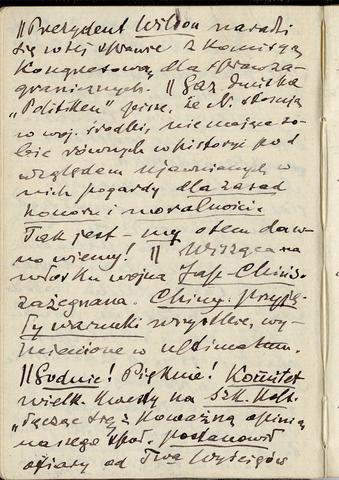 || Prezydent Wilson naradzi
się w tej sprawie z Komisyą
Kongresową dla spraw za-
granicznych. || Gaz. duńska
"Politiken" pisze, że N. stosują
w woj. środki, nie mające so-
bie równych w historyi pod
względem ujawnionej w
nich pogardy dla zasad
honoru i moralności.
Tak jest – my o tem daw-
no wiemy! || Wisząca na
włosku wojna Jap-Chińs.
zażegnana. Chiny przyję-
ły warunki wszystkie, wy-
mienione w ultimatum.
|| Godnie! Pięknie! Komitet
wielk. kwesty na szk.
"łącząc się z poważną opinią
naszego społ. postanowił
ofiary od Twa Wyścigów